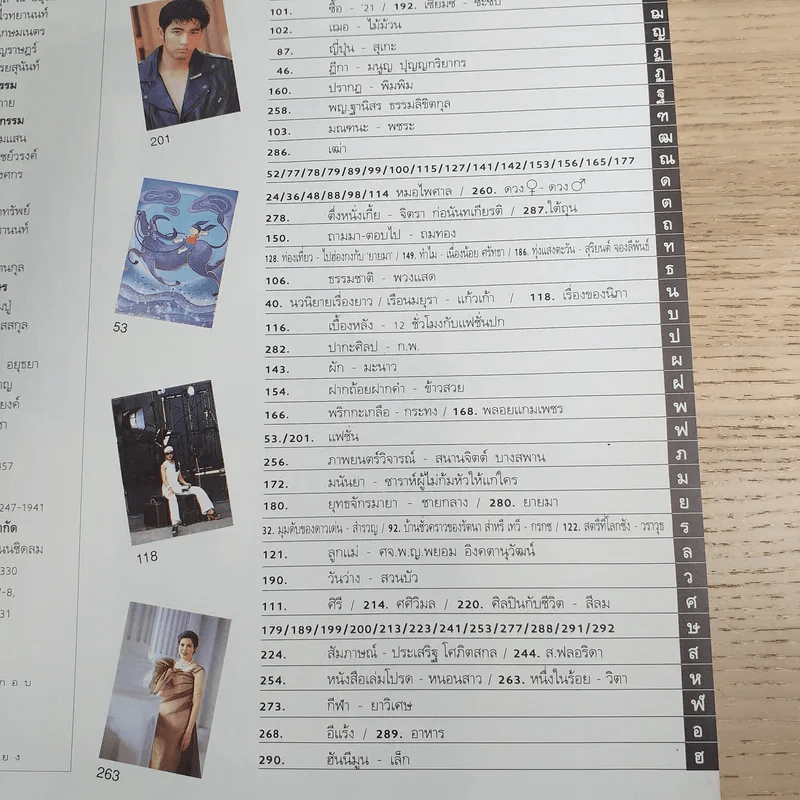 ไวทยานนท์
เกษมเนตร
ญราษฎร์
รยสุนันท์
รรม
กาย
กรรม
มแสน
ชย์วรงค์
งศกร
าทรัพย์
รานนท์
ตนกุล
มปู่
สสกุล
อยุธยา
าญ
ยงค์
ชา
957
247-1941
ากัด
นนชิดลม
330
7-8,
31
กอบ
ียง
201
53
118
263
101. ซื้อ - '21 / 192.
102. เฌอ - ไม้ม้วน
87. ญี่ปุ่น - สุเกะ
46. ฎีกา - มนูญ ปุญญกริยากร
160. ปรากฏ - พิมพิม
258. พญ.ฐานิสร ธรรมลิขิตกุล
103. มณฑนะ - พชระ
286. เฒ่า
52/77/78/79/89/99/100/115/127/141/142/153/156/165/177
24/36/48/88/98/114 หมอไพศาล / 260. ดวง♀- ดวง♂
278. ตึ่งหนั่งเกี้ย - จิตรา ก่อนันทเกียรติ / 287.ใต้ถุน
150. ถามมา-ตอบไป - ถมทอง
128. ท่องเที่ยว - ไปฮ่องกงกับ 'ยายมา' / 149. ทำไม - เนื่องน้อย ศรัทธา / 186. ทุ่งแสงตะวัน - สุริยนต์ จองลีพันธ์
106. ธรรมชาติ - พวงแสด
40. นวนิยายเรื่องยาว / เรือนมยุรา - แก้วเก้า / 118. เรื่องของนิภา
116. เบื้องหลัง - 12 ชั่วโมงกับแฟชั่นปก
282. ปากะศิลป - ก.พ.
143. ผัก - มะนาว
154. ฝากถ้อยฝากคำ - ข้าวสวย
166. พริกกะเกลือ - กระทง / 168. พลอยแกมเพชร
53./201. แฟชั่น
256. ภาพยนตร์วิจารณ์ - สนานจิตต์ บางสพาน
172. มนันยา - ซาราห์ผู้ไม่ก้มหัวให้แก่ใคร
180. ยุทธจักรมายา - ชายกลาง / 280. ยายมา
32. มุมดับของดาวเด่น - สำรวญ / 92. บ้านชั่วคราวของรัตนา สำหรี เทวี - กรกช / 122. สตรีที่โลกชัง - วราวุธ
121. ลูกแม่ - ศจ.พ.ญ.พยอม อิงคตานุวัฒน์
190. วันว่าง - สวนบัว
111. ศิรี / 214. ศศิวิมล / 220. ศิลปินกับชีวิต - สีลม
179/189/199/200/213/223/241/253/277/288/291/292
224. สัมภาษณ์ - ประเสริฐ โศภิตสกล / 244. ส.ฟลอริดา
254. หนังสือเล่มโปรด - หนอนสาว / 263. หนึ่งในร้อย - วิตา
273. กีฬา - ยาวิเศษ
268. อีแร้ง / 289. อาหาร
290. ฮันนีมูน - เล็ก
ฌ
ญ
ฎ
ฏ
ฐ
ฑ
ฒ
ณ
ด
ต
ถ
ท
ธ
น
บ
ป
ผ
ฝ
พ
ฟ
ภ
ม
ย
ร
ล
ว
ศ
ษ
ส
ห
ฬ
อ
ฮ